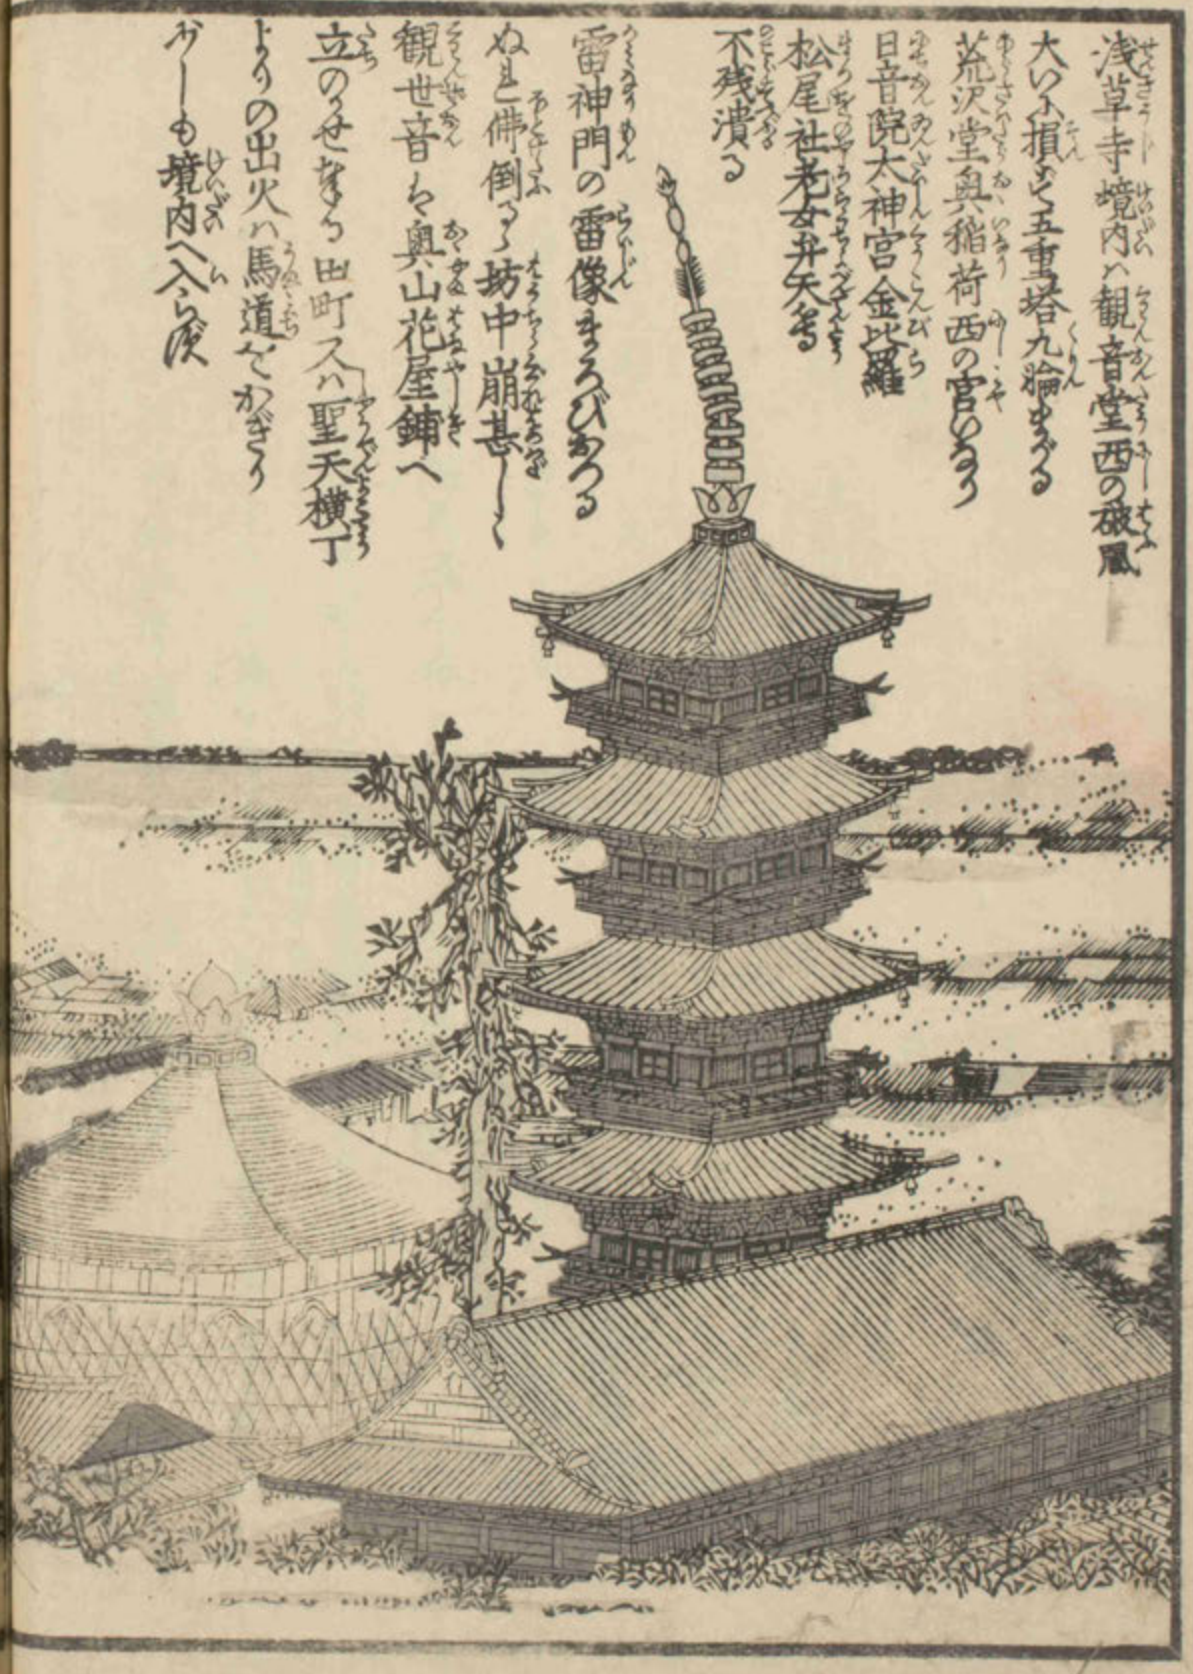 浅草寺境内ハ観音堂西の破風
大いに損ず五重塔九輪まがる
荒沢堂奥稲荷西の宮いなり
日音院太神宮金比羅
松尾社老女弁天等
不残潰る
雷神門の雷像まろびおつる
ぬれ佛倒るゝ坊中崩甚しく
観世音ハ奥山花屋鋪へ
立のかせ奉る田町又ハ聖天横丁
よりの出火ハ馬道をかぎり
少しも境内へ入らず